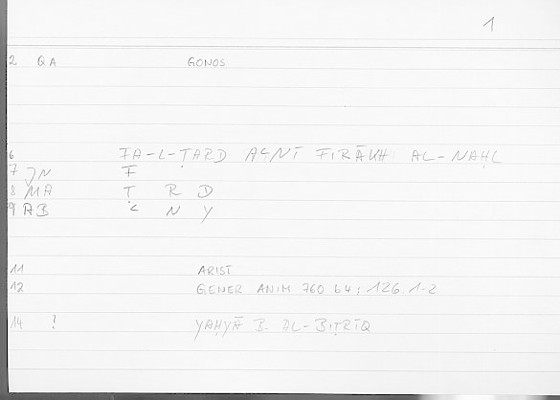 1
2 QA GONOS
6 FA-L-ṬARD AʿNĪ FIRĀKH AL-NAḤL
7 JN F
8 MA Ṭ R D
9 AB ʿ N Y
11 ARIST
12 GENER ANIM 760 b4; 126 1-2
14 ? YAḤYĀ B. AL-BIṬRĪQ